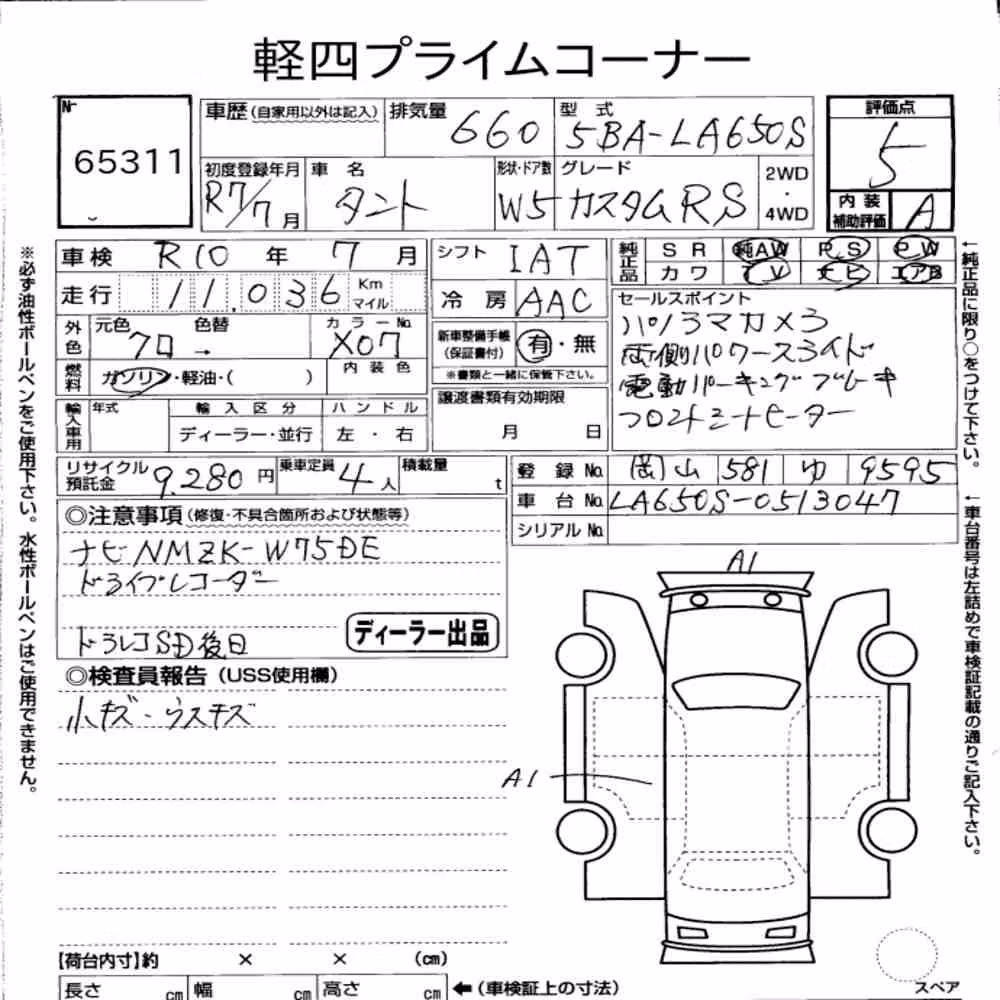 軽四プライムコーナー
№ 65311
車歴(自家用以外は記入) 排気量 660 型式 5BA-LA650S
評価点 5
初度登録年月 R7/7月 車名 タント 形状・ドア数 W5 グレード カスタムRS 2WD・4WD
内装補助評価 A
車検 R10年 7月 シフト IAT
純正品 SR 純AW P.S P.W カワ TV ナビ エアB
走行 11,036 Km マイル 冷房 AAC
セールスポイント
パノラマカメラ
両側パワースライド
電動パーキングブレーキ
フロントシートヒーター
外色 元色 クロ → 色替 カラーNo. X07
新車整備手帳(保証書付) 有・無
※書類と一緒に保管下さい。
燃料 ガソリン・軽油・( ) 内装色
譲渡書類有効期限 月 日
輸入車用 年式 輸入区分 ハンドル
ディーラー・並行 左・右
リサイクル預託金 9,280円 乗車定員 4人 積載量 t
登録No. 岡山 581 ゆ 9595
車台No. LA650S-0513047
シリアルNo.
◎注意事項(修復・不具合箇所および状態等)
ナビNMZK-W75DE
ドライブレコーダー
ドラレコSD後日
ディーラー出品
◎検査員報告(USS使用欄)
小キズ・ウスキズ
A1
A1
【荷台内寸】約 × × (cm)
長さ cm 幅 cm 高さ cm ←(車検証上の寸法)
スペア
※必ず油性ボールペンをご使用下さい。水性ボールペンはご使用できません。
←純正品に限り○をつけて下さい。
←車台番号は左詰めで車検証記載の通りご記入下さい。